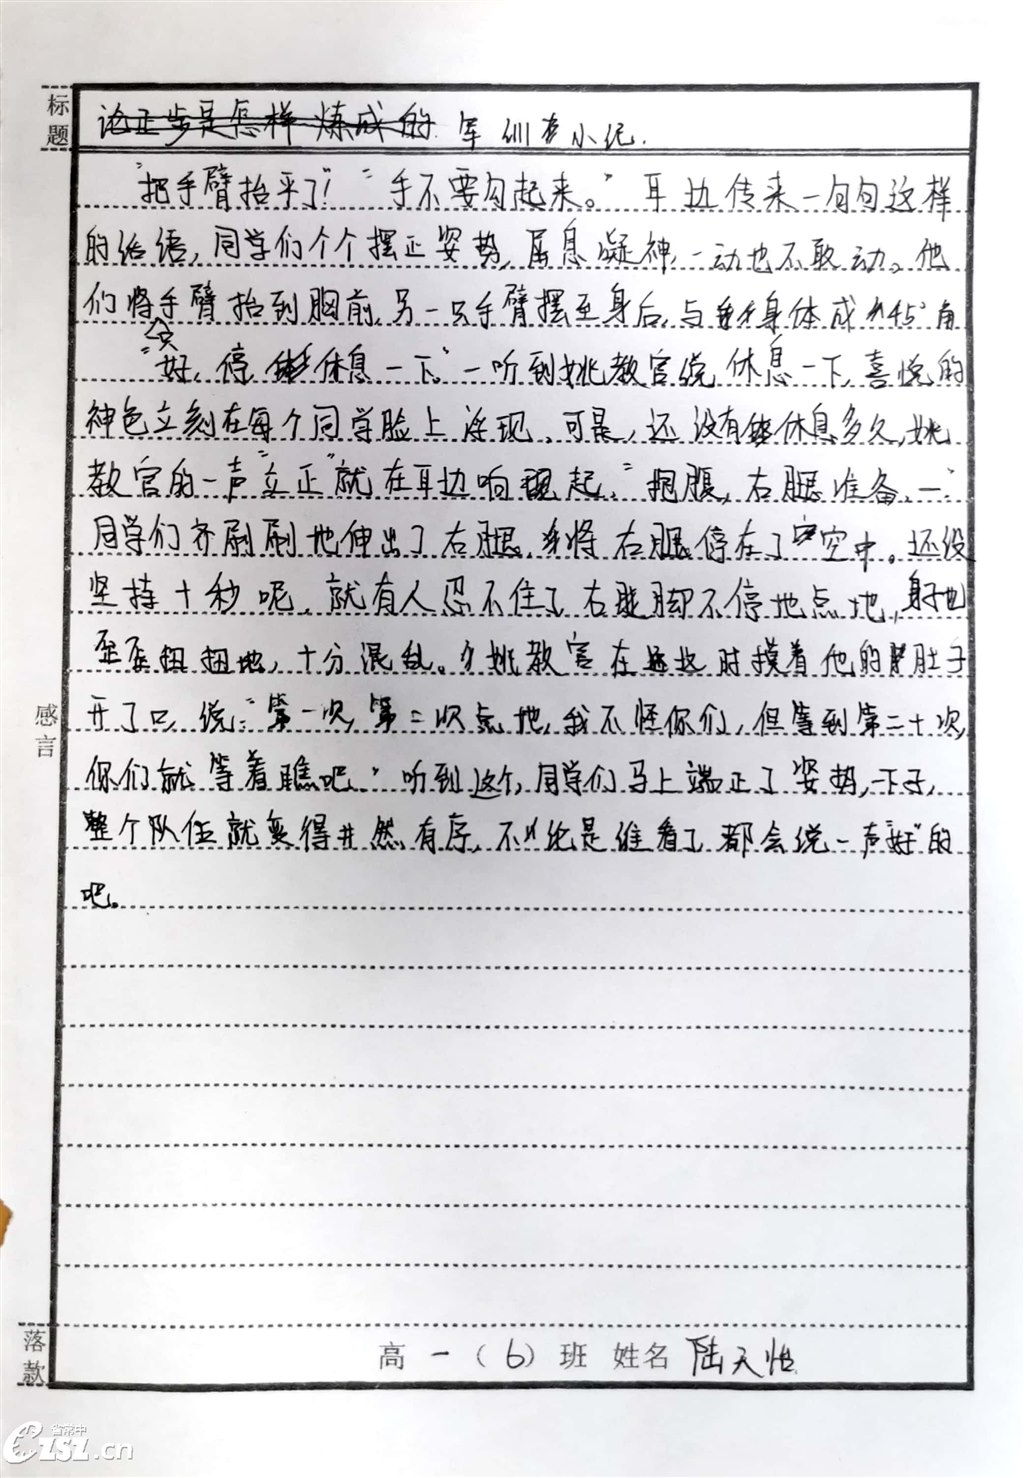 标题
论正步是怎样炼成的 军训小记.
"把手臂抬平了!""手不要勾起来。"耳边传来一句句这样
的话语,同学们个个摆正姿势,屏息凝神,一动也不敢动。他
们将一只手臂抬到胸前,另一只手臂摆至身后,与身体成45°角
"好,停,休息一下。"一听到姚教官说休息一下,喜悦的
神色立刻在每个同学脸上浮现。可是,还没有休息多久,姚
教官的一声"立正"就在耳边响起,"抱腹,右腿准备,一"
同学们齐刷刷地伸出了右腿,将右腿停在了空中。还没
坚持十秒呢,就有人忍不住了,右脚不停地点地,身子也
歪歪扭扭地,十分混乱。姚教官在这时摸着他的肚子
开了口,说:"第一次,第二次点地,我不怪你们,但等到第二十次,
你们就等着瞧吧。"听到这个,同学们马上端正了姿势,一下子,
整个队伍就变得井然有序,不论是谁看了都会说一声"好"的
吧。
感言
落款
高一(6)班 姓名 陆天怡
省常中
CZSZ.cn